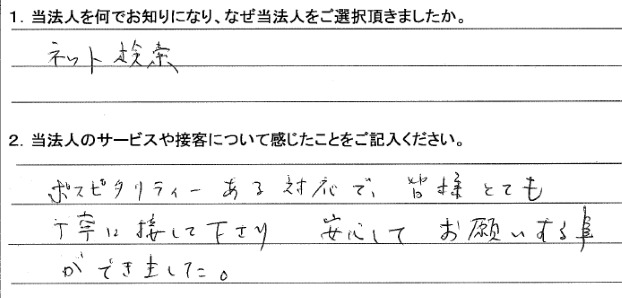 1. 当法人を何でお知りになり、なぜ当法人をご選択頂きましたか。
ネット検索
2. 当法人のサービスや接客について感じたことをご記入ください。
ホスピタリティーある対応で、皆様とても
丁寧に接して下さり 安心してお願いする事
ができました。